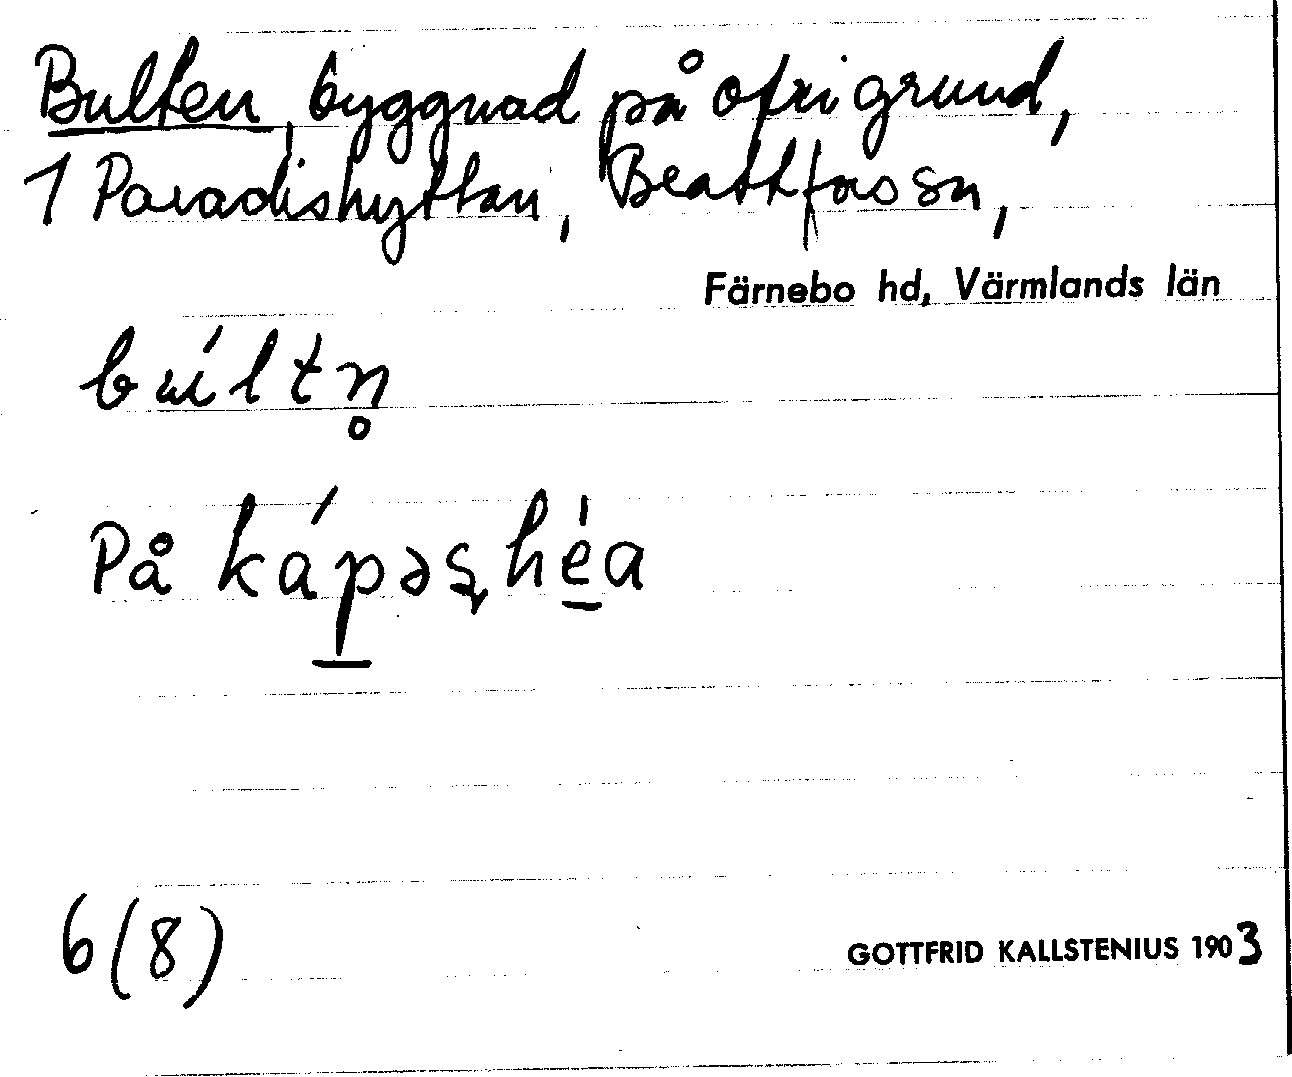 Bulten, byggnad på ofri grund,
1 Paradishyttan, Beattforssn,
Färnebo hd, Värmlands län
búltn̥
På kápəsheá
6(8)
GOTTFRID KALLSTENIUS 1903